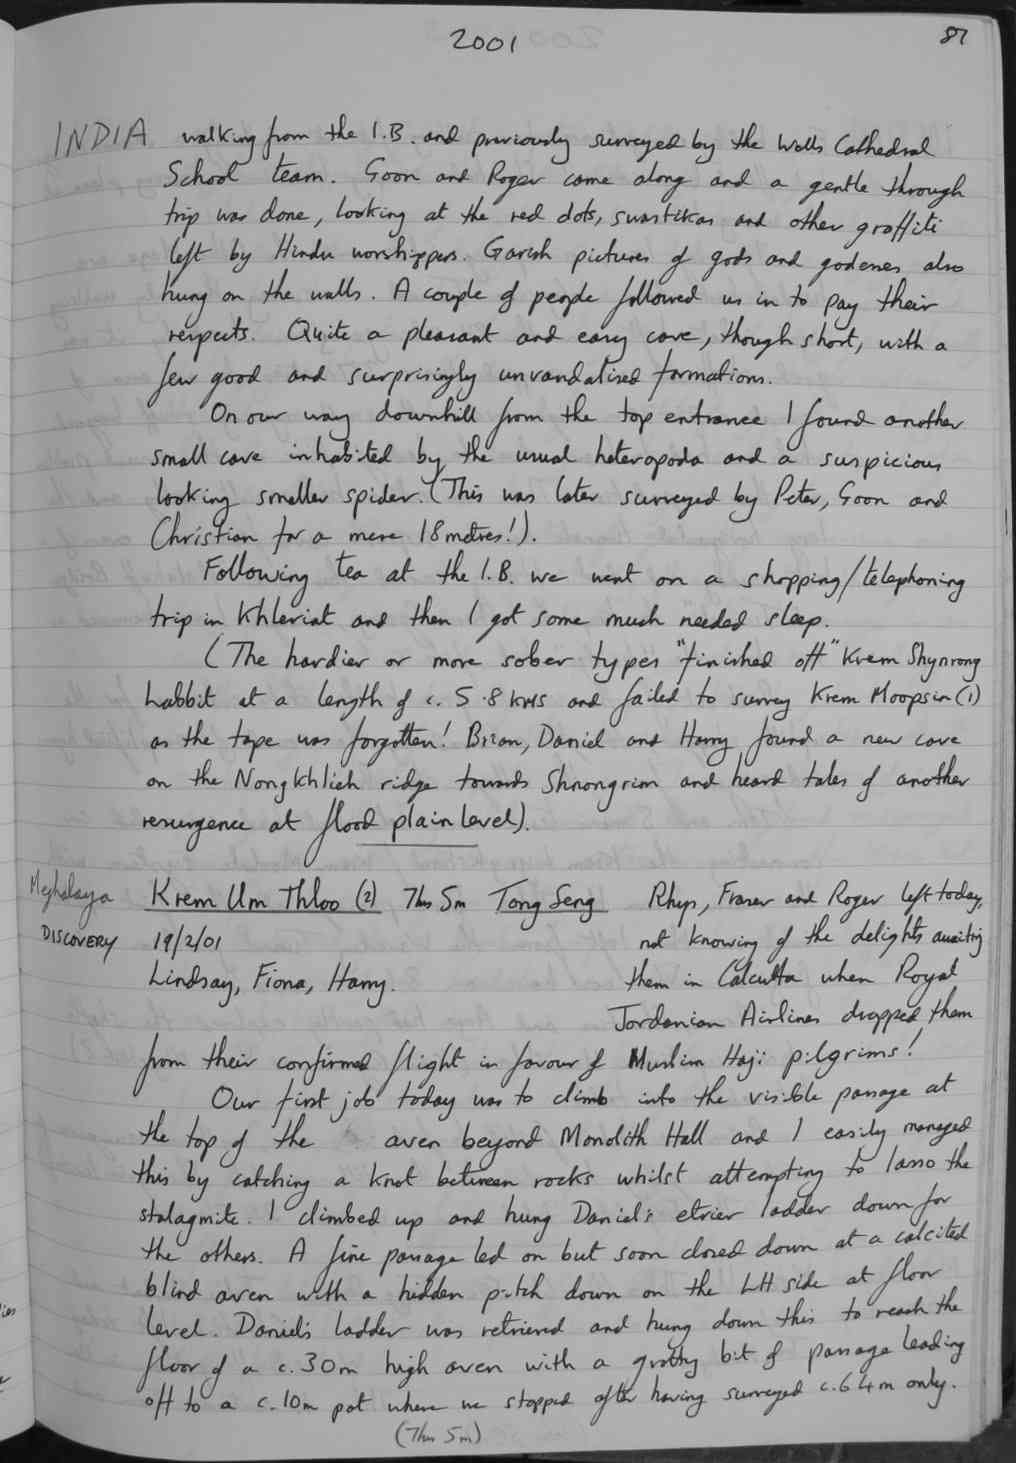 2001
87
INDIA walking from the I.B. and previously surveyed by the Wells Cathedral
School team. Goon and Roger came along and a gentle through
trip was done, looking at the red dots, swastikas and other graffiti
left by Hindu worshippers. Garish pictures of gods and godesses also
hung on the walls. A couple of people followed us in to pay their
respects. Quite a pleasant and easy cave, though short, with a
few good and surprisingly unvandalised formations.
On our way downhill from the top entrance I found another
small cave inhabited by the usual heteropoda and a suspicious
looking smaller spider. (This was later surveyed by Peter, Goon and
Christian for a mere 18 metres!).
Following tea at the I.B. we went on a shopping/telephoning
trip in Khleriat and then I got some much needed sleep.
(The hardier or more sober types "finished off" Krem Shynrong
Labbit at a length of c. 5.8 kms and failed to survey Krem Moopsin (1)
as the tape was forgotten! Brian, Daniel and Harry found a new cave
on the Nongkhlieh ridge towards Shnongrim and heard tales of another
resurgence at flood plain level).
Meghalaya Krem Um Thloo (2) 7hrs 5m Tong Seng Rhys, Fraser and Roger left today,
DISCOVERY 19/2/01 not knowing of the delights awaiting
Lindsay, Fiona, Harry. them in Calcutta when Royal
Jordanian Airlines dropped them
from their confirmed flight in favour of Muslim Haji pilgrims!
Our first job today was to climb into the visible passage at
the top of the aven beyond Monolith Hall and I easily managed
this by catching a knot between rocks whilst attempting to lasso the
stalagmite. I climbed up and hung Daniel's etrier ladder down for
the others. A fine passage led on but soon closed down at a calcited
blind aven with a hidden pitch down on the LH side at floor
level. Daniel's ladder was retrieved and hung down this to reach the
floor of a c.30m high aven with a grotty bit of passage leading
off to a c.10m pot where we stopped after having surveyed c.64m only.
(7hrs 5m)